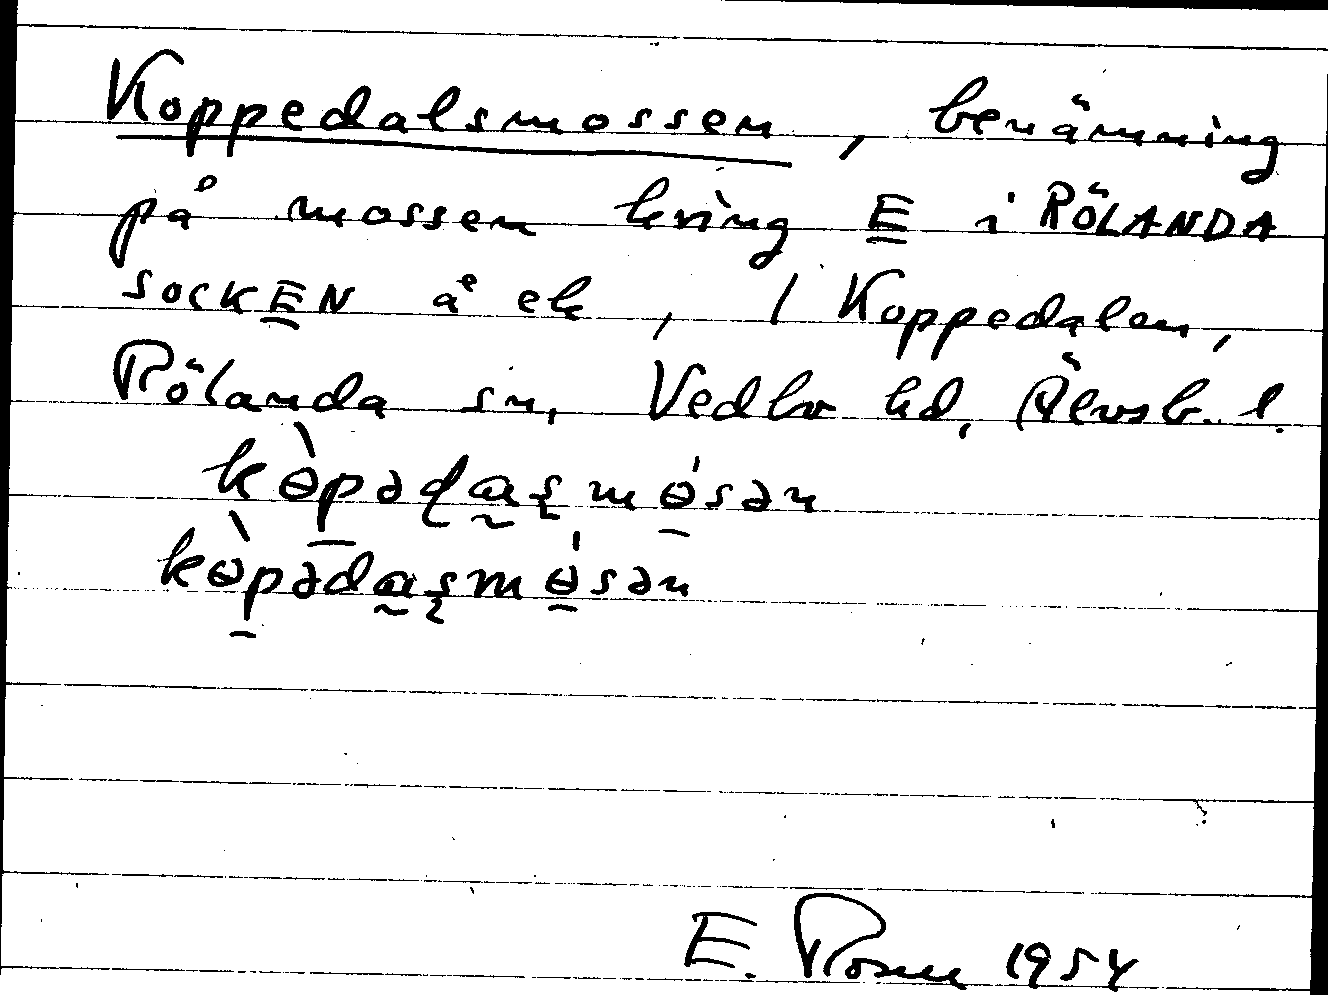 Koppedalsmossen, benämning
på mossen kring E i RÖLANDA
SOCKEN å ek, / Koppedalen,
Rölanda sn, Vedbo hd, Älvsb. l.
kɵ̀pədɑʂmɵ́sən
kɵ̀pədɑʂmɵ́sən
E. 1954